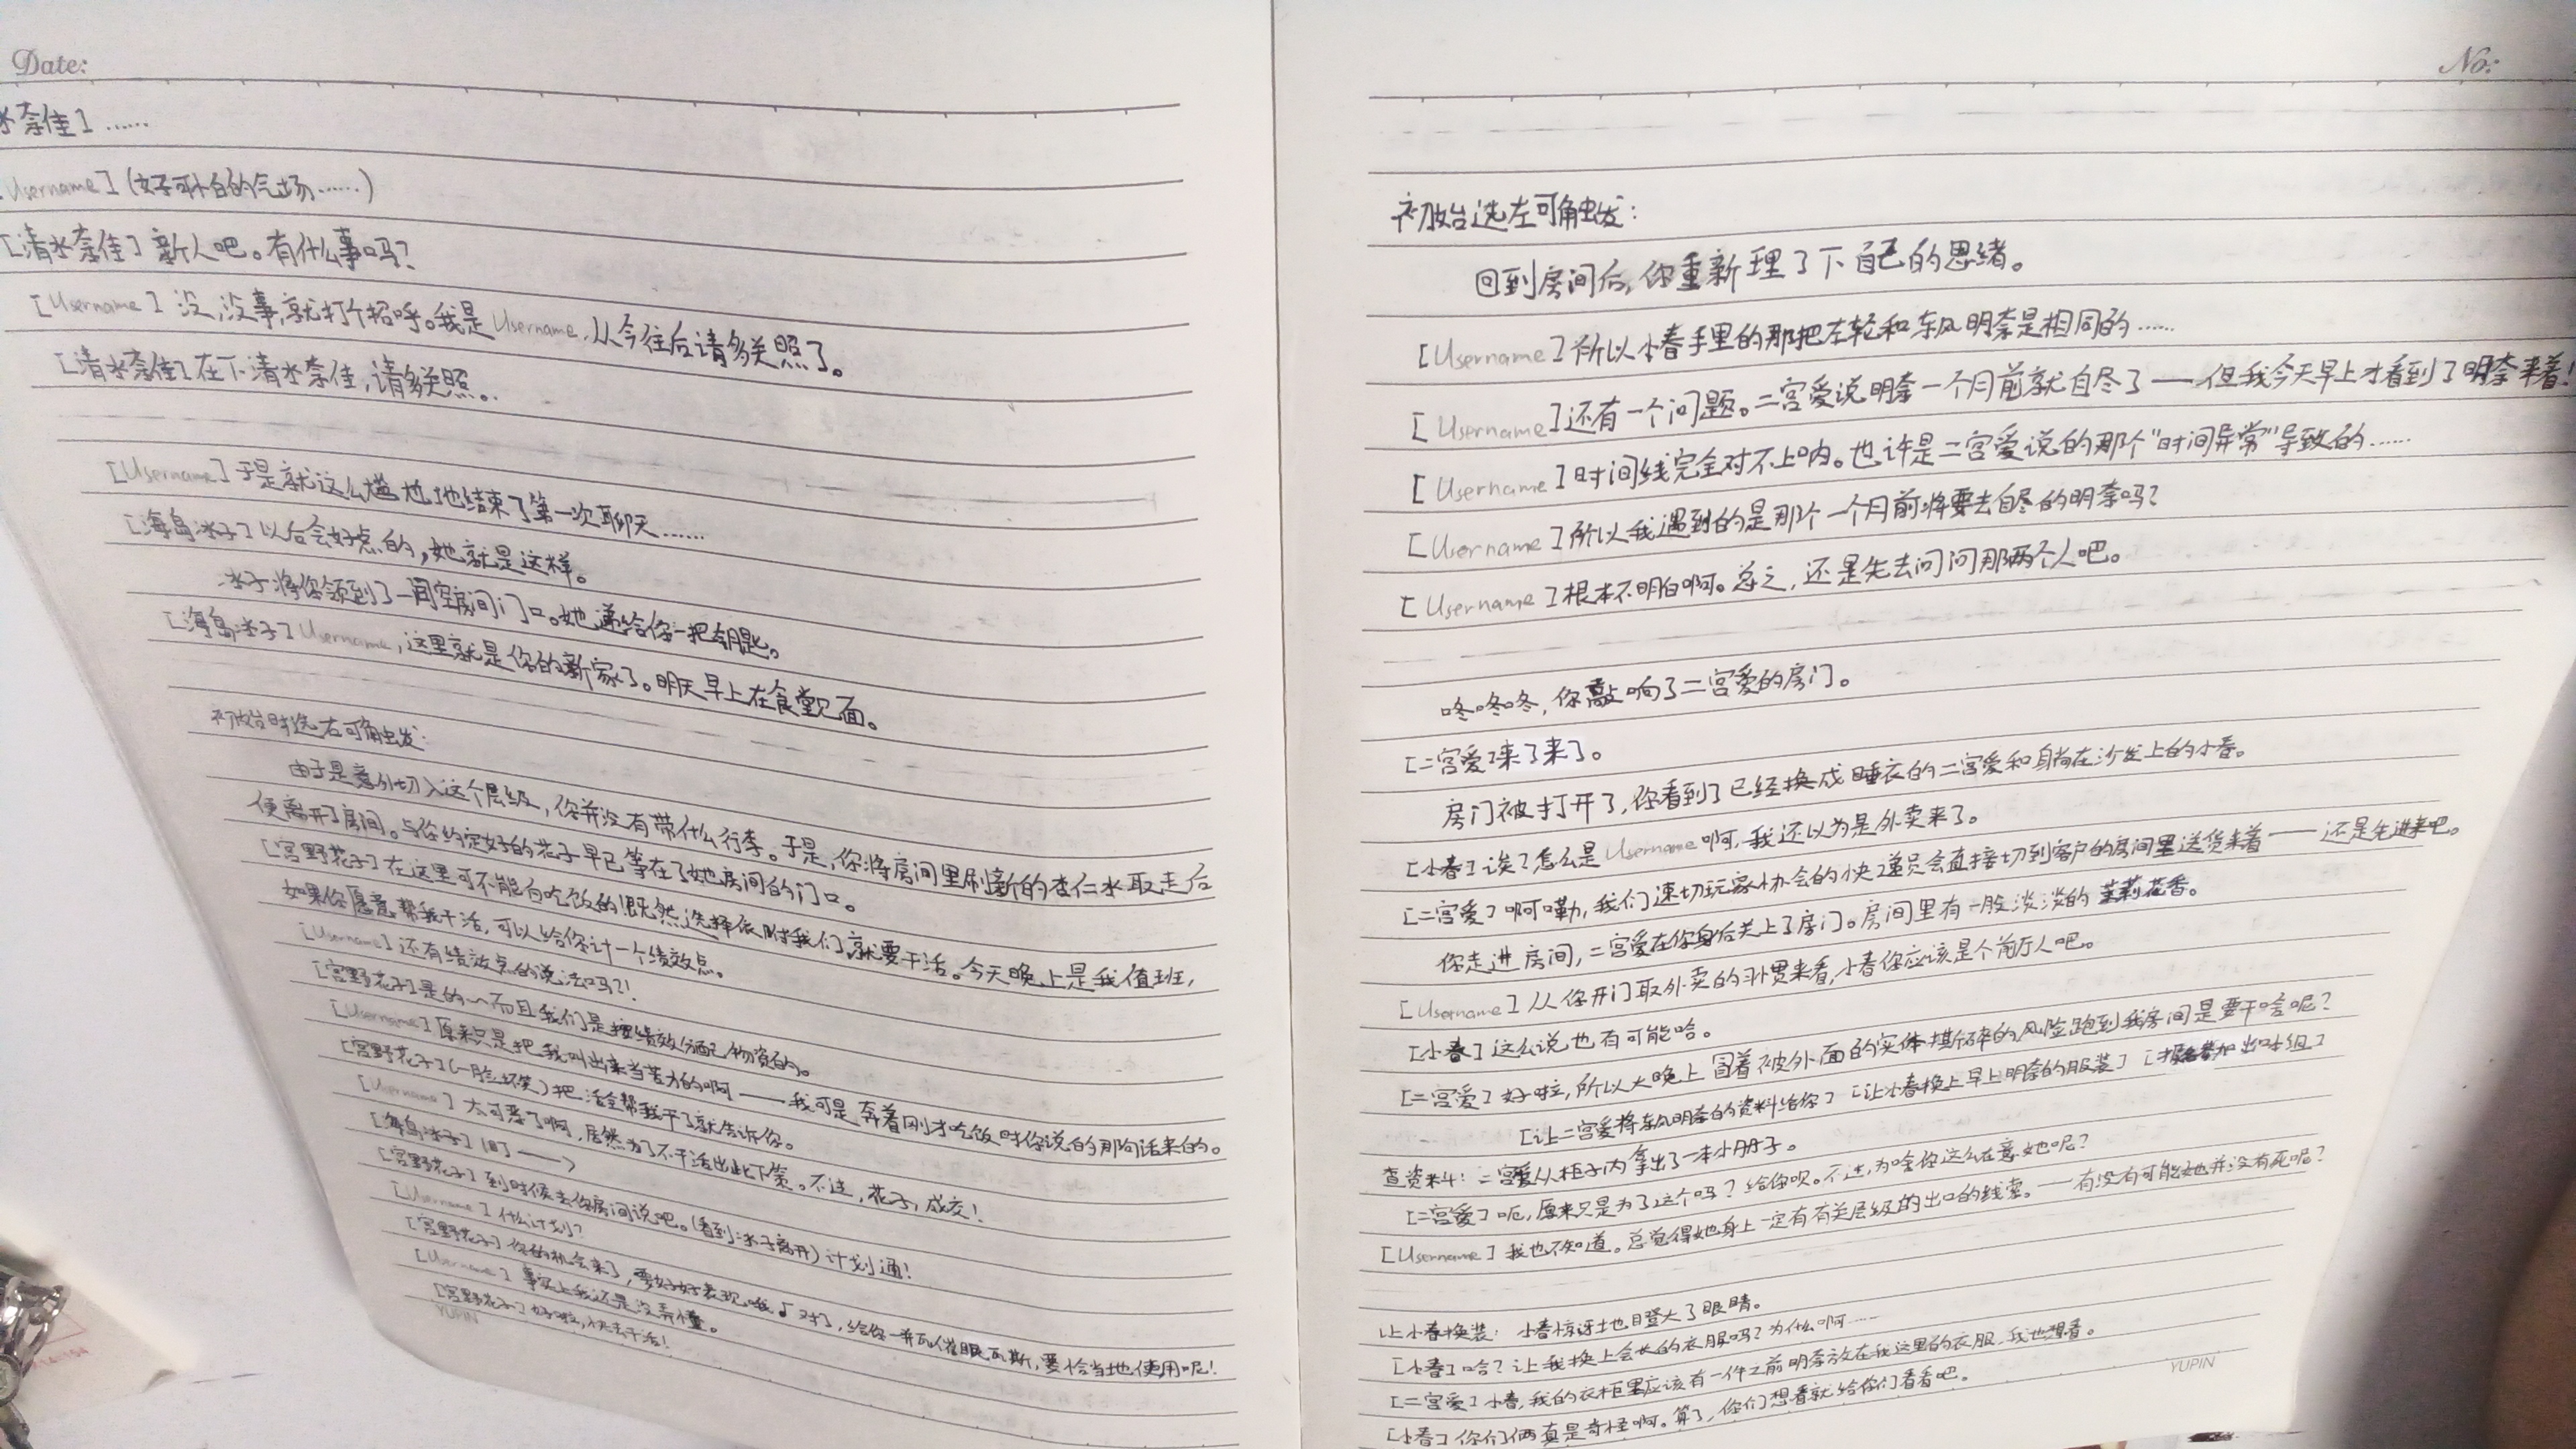 Date:
水奈佳]……
Username](好可怕的气场……)
[清水奈佳]新人吧。有什么事吗?
[Username]没,没事,就打个招呼。我是Username,从今往后请多关照了。
[清水奈佳]在下清水奈佳,请多关照。
[Username]于是就这么尴尬地结束了第一次聊天……
[海岛冰子]以后会好点的,她就是这样。
冰子将你领到了一间空房间门口。她递给你一把钥匙。
[海岛冰子]Username,这里就是你的新家了。明天早上在食堂见面。
初始时选右可触发:
由于是意外切入这个层级,你并没有带什么行李。于是,你将房间里刷新的杏仁水取走后
便离开了房间。与你约定好的花子早已等在了她房间的门口。
[宫野花子]在这里可不能白吃饭的!既然选择依附我们,就要干活。今天晚上是我值班,
如果你愿意帮我干活,可以给你计一个绩效点。
[Username]还有绩效点的说法吗?!
[宫野花子]是的~而且我们是按绩效分配物资的。
[Username]原来只是把我叫出来当苦力的啊——我可是奔着刚才吃饭时你说的那句话来的。
[宫野花子](一脸坏笑)把活全帮我干了就告诉你。
[Username]太可恶了啊,居然为了不干活出此下策。不过,花子,成交!
[海岛冰子]盯——>
[宫野花子]到时候去你房间说吧。(看到冰子离开)计划通!
[Username]什么计划?
[宫野花子]你的机会来了,要好好表现哦♪对了,给你一并瓦催眠瓦斯,要恰当地使用呢!
[Username]事实上我还是没弄懂。
[宫野花子]好啦,快去干活!
YUPIN
No:
初始选左可触发:
回到房间后,你重新理了下自己的思绪。
[Username]所以小春手里的那把左轮和东风明奈是相同的……
[Username]还有一个问题。二宫爱说明奈一个月前就自尽了——但我今天早上才看到了明奈来着!
[Username]时间线完全对不上呐。也许是二宫爱说的那个"时间异常"导致的……
[Username]所以我遇到的是那个一个月前将要去自尽的明奈吗?
[Username]根本不明白啊。总之,还是先去问问那两个人吧。
咚咚咚,你敲响了二宫爱的房门。
[二宫爱]来了来了。
房门被打开了,你看到了已经换成睡衣的二宫爱和身尚在沙发上的小春。
[小春]诶?怎么是Username啊,我还以为是外卖来了。
[二宫爱]啊嘞,我们速切玩家协会的快递员会直接切到客户的房间里送货来着——还是先进来吧。
你走进房间,二宫爱在你身后关上了房门。房间里有一股淡淡的茉莉花香。
[Username]从你开门取外卖的习惯来看,小春你应该是个前厅人吧。
[小春]这么说也有可能哈。
[二宫爱]好啦,所以大晚上冒着被外面的实体撕碎的风险跑到我房间是要干啥呢?
[让二宫爱将东风明奈的资料给你][让小春换上早上明奈的服装][报名参加出口小组]
查资料:二宫爱从柜子内拿出了一本小册子。
[二宫爱]呃,原来只是为了这个吗?给你呗。不过,为啥你这么在意她呢?
[Username]我也不知道。总觉得她身上一定有有关层级的出口的线索。——有没有可能她并没有死呢?
让小春换装:小春惊讶地瞪大了眼睛。
[小春]哈?让我换上会长的衣服吗?为什么啊……
[二宫爱]小春,我的衣柜里应该有一件之前明奈放在我这里的衣服,我也想看。
[小春]你们俩真是奇怪啊。算了,你们想看就给你们看看吧。
YUPIN